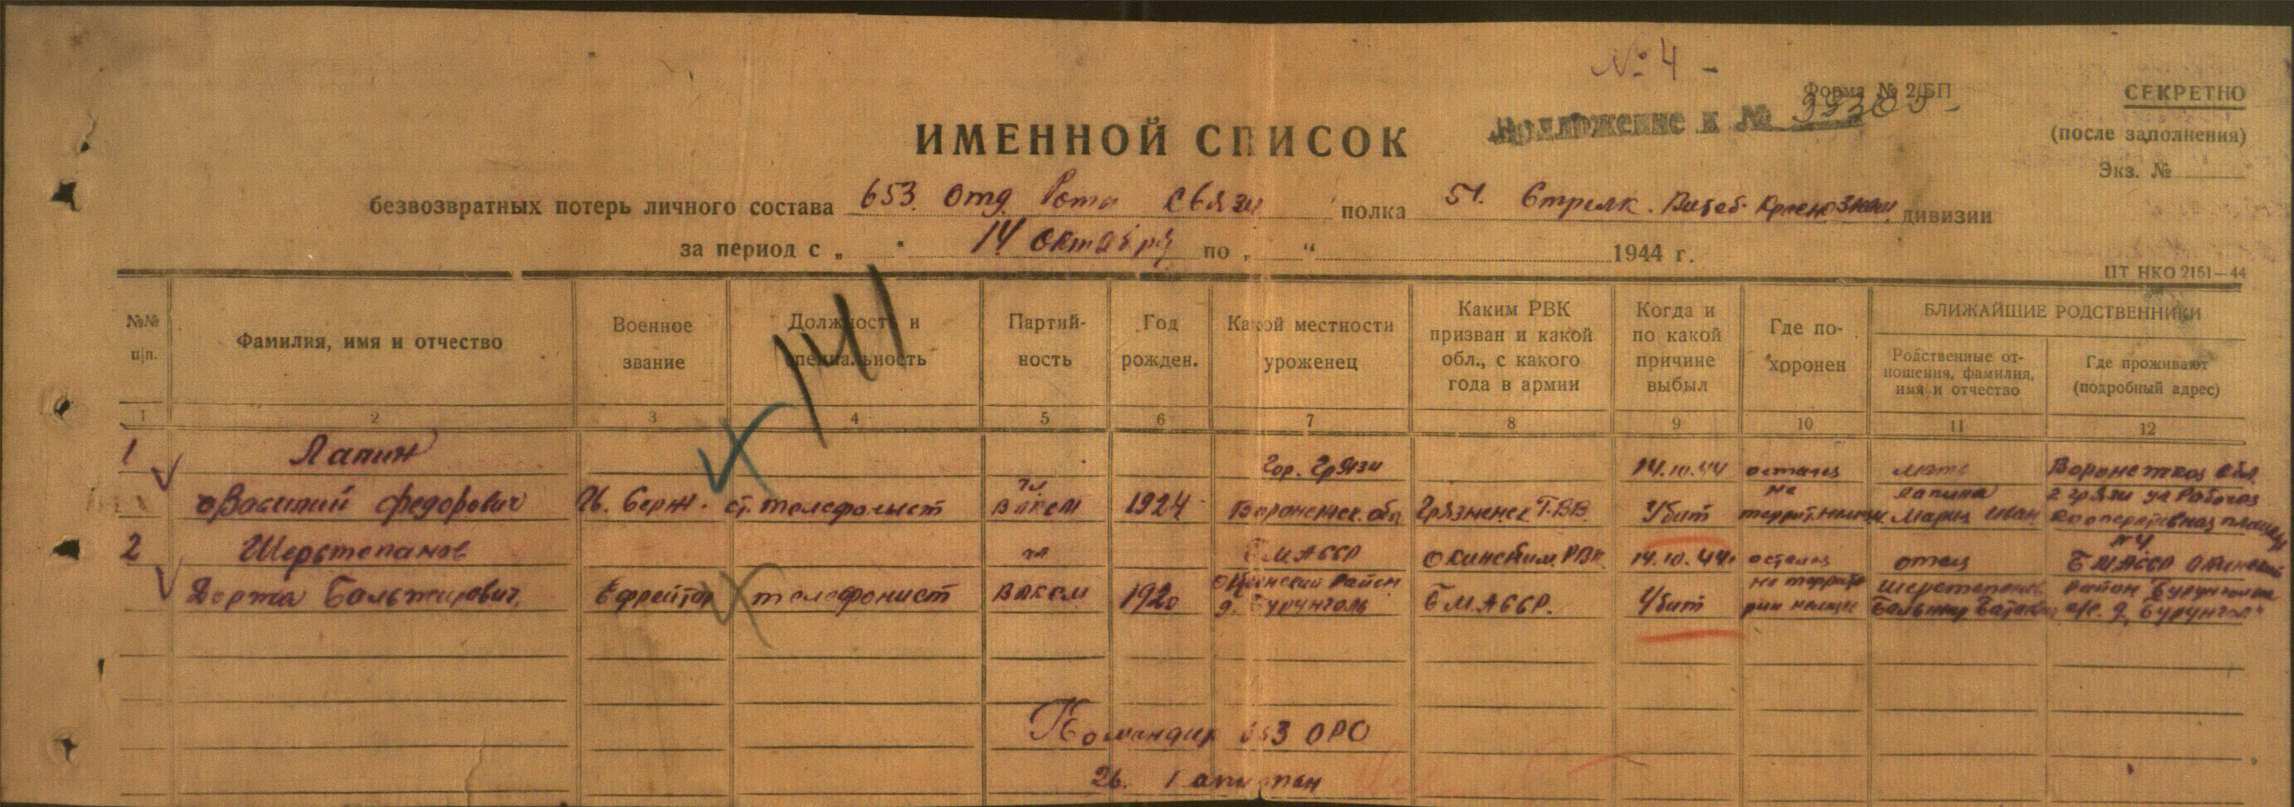 № 4 -
Форма № 2/БП
СЕКРЕТНО
(после заполнения)
Экз. №
ИМЕННОЙ СПИСОК
к №
безвозвратных потерь личного состава 653 отд. Рота связи полка 51. Стрелк. Витеб. Краснознам. дивизии
за период с „ " 14 октября по „ " 1944 г.
ЦТ НКО 2151—44
№№ п/п.
Фамилия, имя и отчество
Военное звание
Должность и специальность
Партий-
ность
Год рожден.
Какой местности уроженец
Каким РВК
призван и какой
обл., с какого
года в армии
Когда и
по какой
причине
выбыл
Где по-
хоронен
БЛИЖАЙШИЕ РОДСТВЕННИКИ
Родственные от-
ношения, фамилия,
имя и отчество
Где проживают
(подробный адрес)
141
1 2 3 4 5 6 7 8 9 10 11 12
1 Лапин гор. Грязи 14.10.44 остался мать Воронежская обл.
Василий Федорович Гв. Серж. ст. телефонист чл ВЛКСМ 1924 Воронежск. обл Грязненск РВК Убит на террит. Лапина Мария Иван г Грязи ул Рабочая Кооперативная
2 Шерстепанов чл БМАССР Окинским РВК 14.10.44 остался отец БМАССР Окинский
Доржа Бальжирович Ефрейтор телефонист ВЛКСМ 1920 Окинский район д. Бурунголь БМАССР. Убит на террито рии Шерстепанов район д. Бурунгол
Командир 653 ОРС
Гв. Капитан